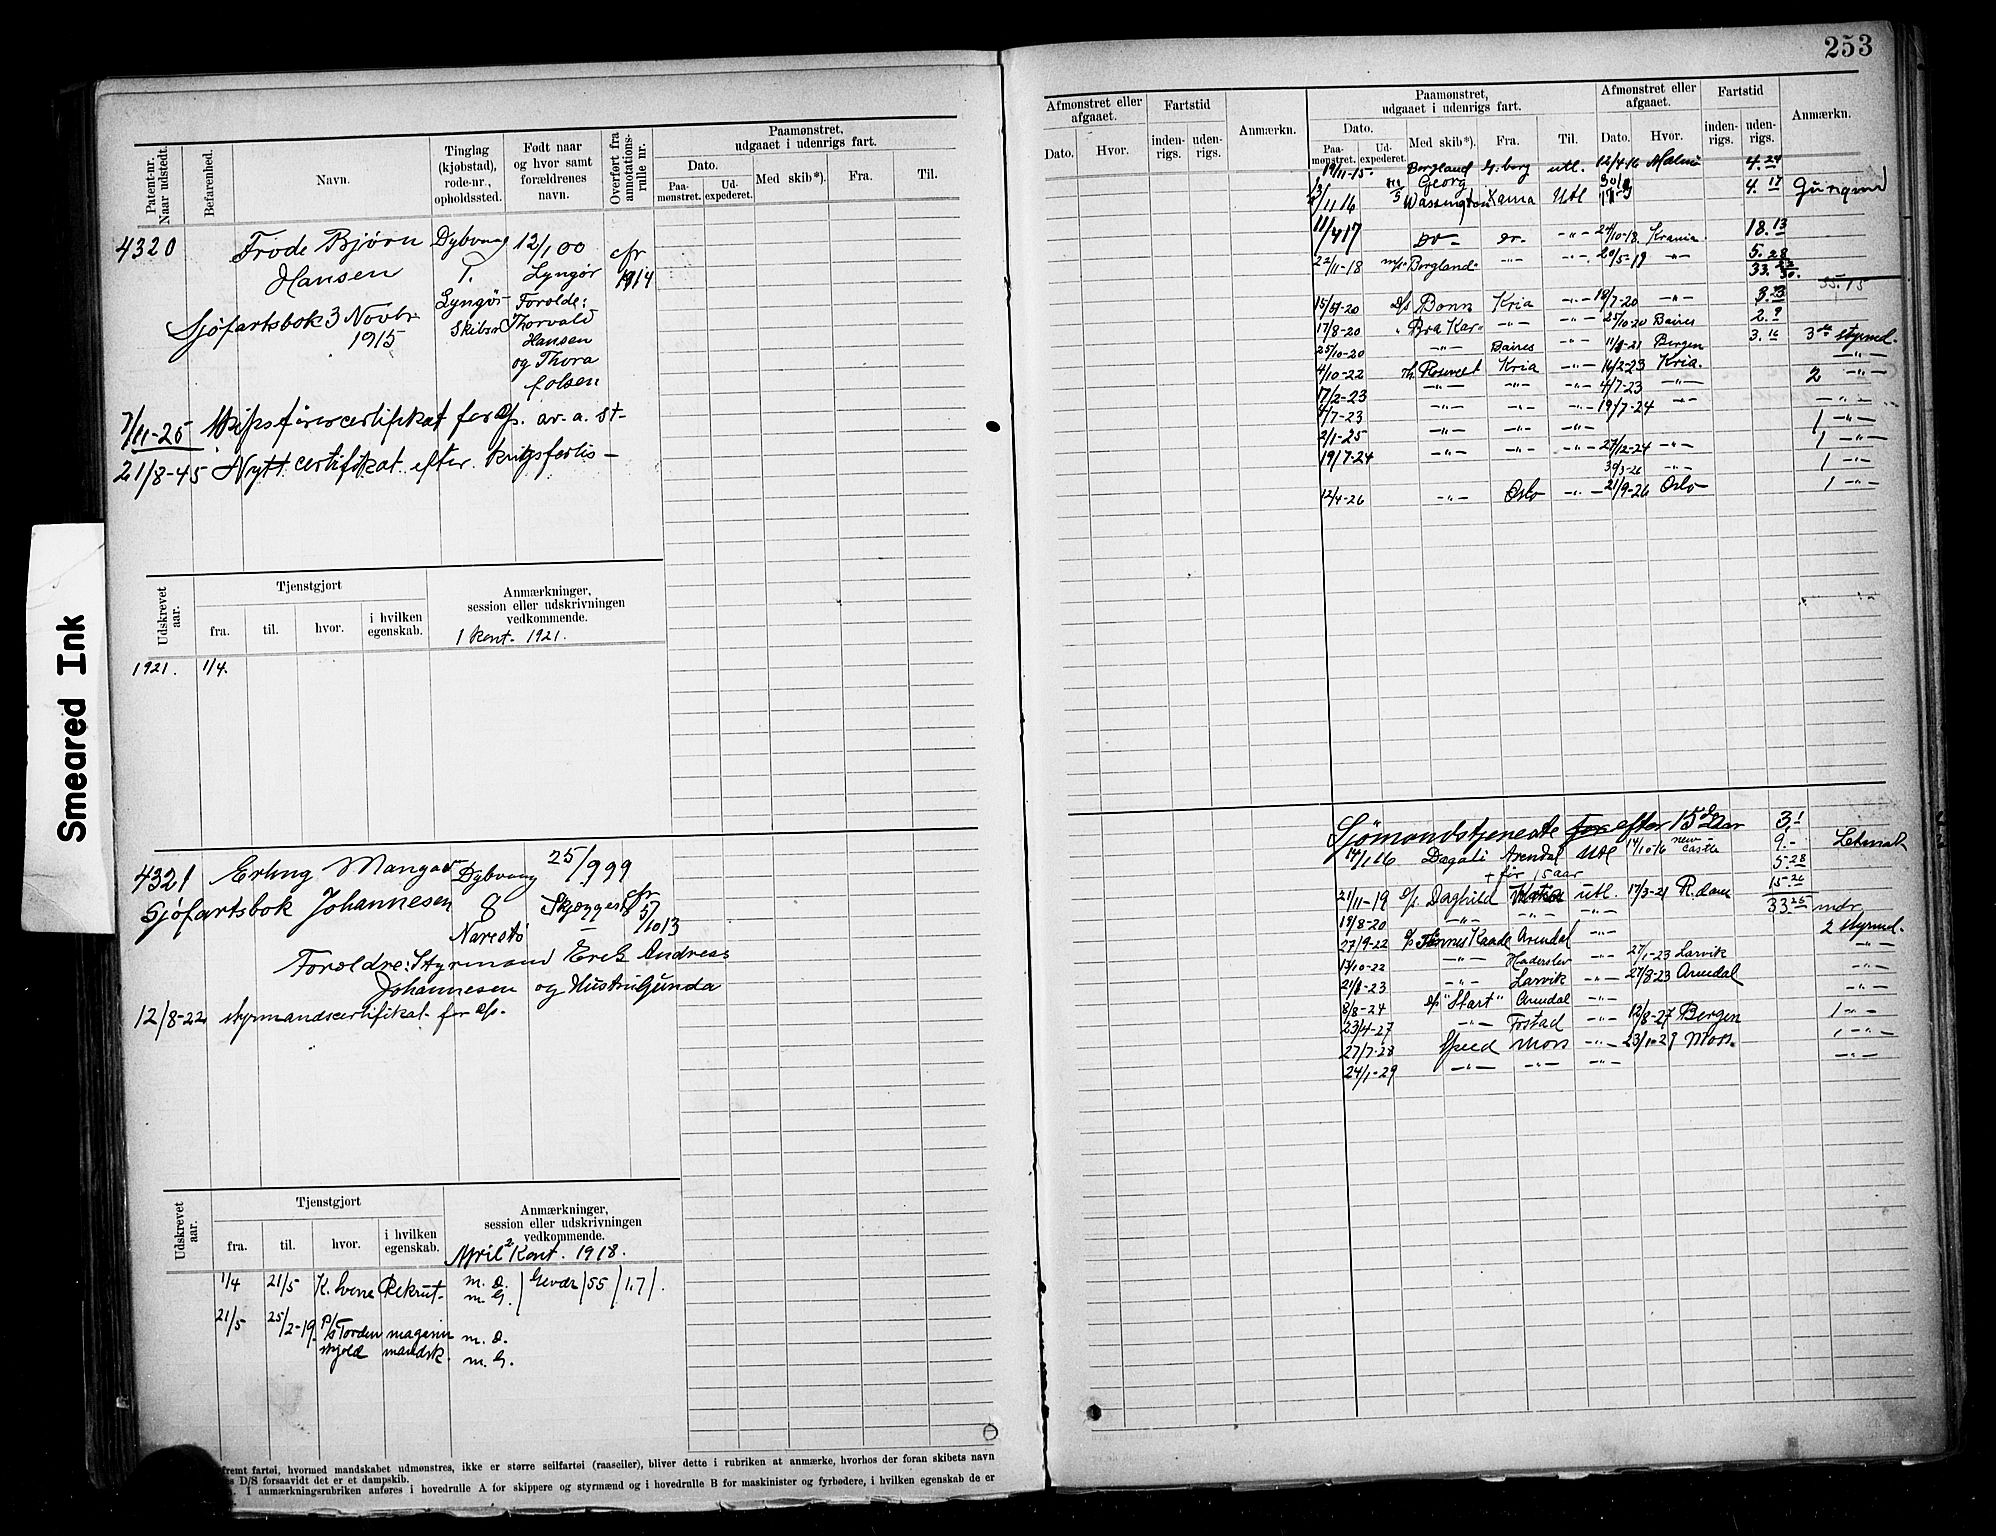 253
Smeared Ink
Patent-nr. Naar udstedt.
Befarenhed.
Navn.
Tinglag (kjøbstad), rode-nr., opholdssted.
Født naar og hvor samt forældrenes navn.
Overført fra annotations- rulle nr.
Paamønstret, udgaaet i udenrigs fart.
Dato.
Paa- mønstret.
Ud- expederet.
Med skib*).
Fra.
Til.
4320
Frode Bjørn
Hansen
Sjøfartsbok 3 Novbr
1915
Dybvaag
1.
Lyngør
Skibsr
12/1 00
Lyngør
Forælde:
Thorvald
Hansen
og Thora
f. Olsen
fr
1914
7/11-25 Skipsførercertifikat for d/s. av. a. st-
21/8-45 Nytt certifikat efter krigsforlis -
Udskrevet aar.
Tjenstgjort
fra.
til.
hvor.
i hvilken egenskab.
Anmærkninger,
session eller udskrivningen
vedkommende.
1 kont. 1921.
1921. 1/4.
4321
Erling Mangor
Johannesen
Sjøfartsbok
Dybvaag
8
Narestø
25/9 99
fr
5/10 13
Forældre: Styrmand Erik Andreas
Johannesen og Hustru Gunda
12/8-22 styrmandscertifikat for d/s.
Udskrevet aar.
Tjenstgjort
fra.
til.
hvor.
i hvilken egenskab.
Anmærkninger,
session eller udskrivningen
vedkommende.
April 2 Kont. 1918.
1/4 21/5 K. Svern Rekrut. m. D. m. G. Gevær 55 1.7
21/5 25/2-19. P/s Torden skjold mandsk. m. D. m. G.
fremt fartøi, hvormed mandskabet udmønstres, ikke er større seilfartøi (raaseiler), bliver dette i rubriken at anmærke, hvorhos der foran skibets navn
es D/S forsaavidt det er et dampskib.
I anmærkningsrubriken anføres i hovedrulle A for skippere og styrmænd og i hovedrulle B for maskinister og fyrbødere, i hvilken egenskab de er
Afmønstret eller afgaaet.
Dato.
Hvor.
Fartstid
inden- rigs.
uden- rigs.
Anmærkn.
Paamønstret,
udgaaet i udenrigs fart.
Dato.
Paa- mønstret.
Ud- expederet.
Med skib*).
Fra.
Til.
Afmønstret eller afgaaet.
Dato.
Hvor.
Fartstid
inden- rigs.
uden- rigs.
Anmærkn.
19/11-15. Borgland G.borg utl. 12/4-16 Malmö 4.24
Georg Wassington Utl 4.17
11/4 17 do - do - -"- 24/10-18. Krania 18.13
22/11-18 m/s "Borgland" -"- -"- 20/5-19 -"- 5.28
33.
15/4-20 D/s Bonn Kria -"- 18/7-20 -"- 3.23
17/8-20 " Bra Kar -"- -"- 25/10-20 Baires 2.9
25/10-20 -"- Baires -"- 11/1-21 Bergen 3.16 3die styrmd.
4/10-22 Th. Rosevelt Kria -"- 16/2-23 Kria. -"-
17/2-23 -"- -"- -"- 4/7-23 -"- 2 -"-
4/7-23 -"- -"- -"- 19/7-24 -"- -"-
2/1-25 -"- -"- -"- 1 -"-
19/7-24 -"- -"- -"- 27/12-24 -"- 1 -"-
30/3-26 -"- 1 -"-
12/4-26 -"- Oslo -"- 21/9-26 Oslo 1 -"-
Sjømandstjeneste for efter 15de Aar 3.1
14/1 16 Dagali Arendal Utl 14/10 16 new castle 9.-
+ før 15 aar 5.28
15.26
21/11-19 s/s. Daghild utl. 17/3-21 R.dam 33.25 mdr
18/8-20 -"- -"- -"- 2 styrmd.
27/9-22 s/s Finnes Kaade Arendal -"- -"-
13/10-22 -"- Haderslev -"- 27/1-23 Larvik
21/1-23 -"- Larvik -"- 27/8-23 Arendal -"-
8/8-24 s/s "Start" Arendal -"- -"-
23/4-27 -"- -"- 12/8-27 Bergen 1 -"-
27/7-28 Speed Moss -"- Moss. -"-
24/1-29 -"- -"- -"- -"-